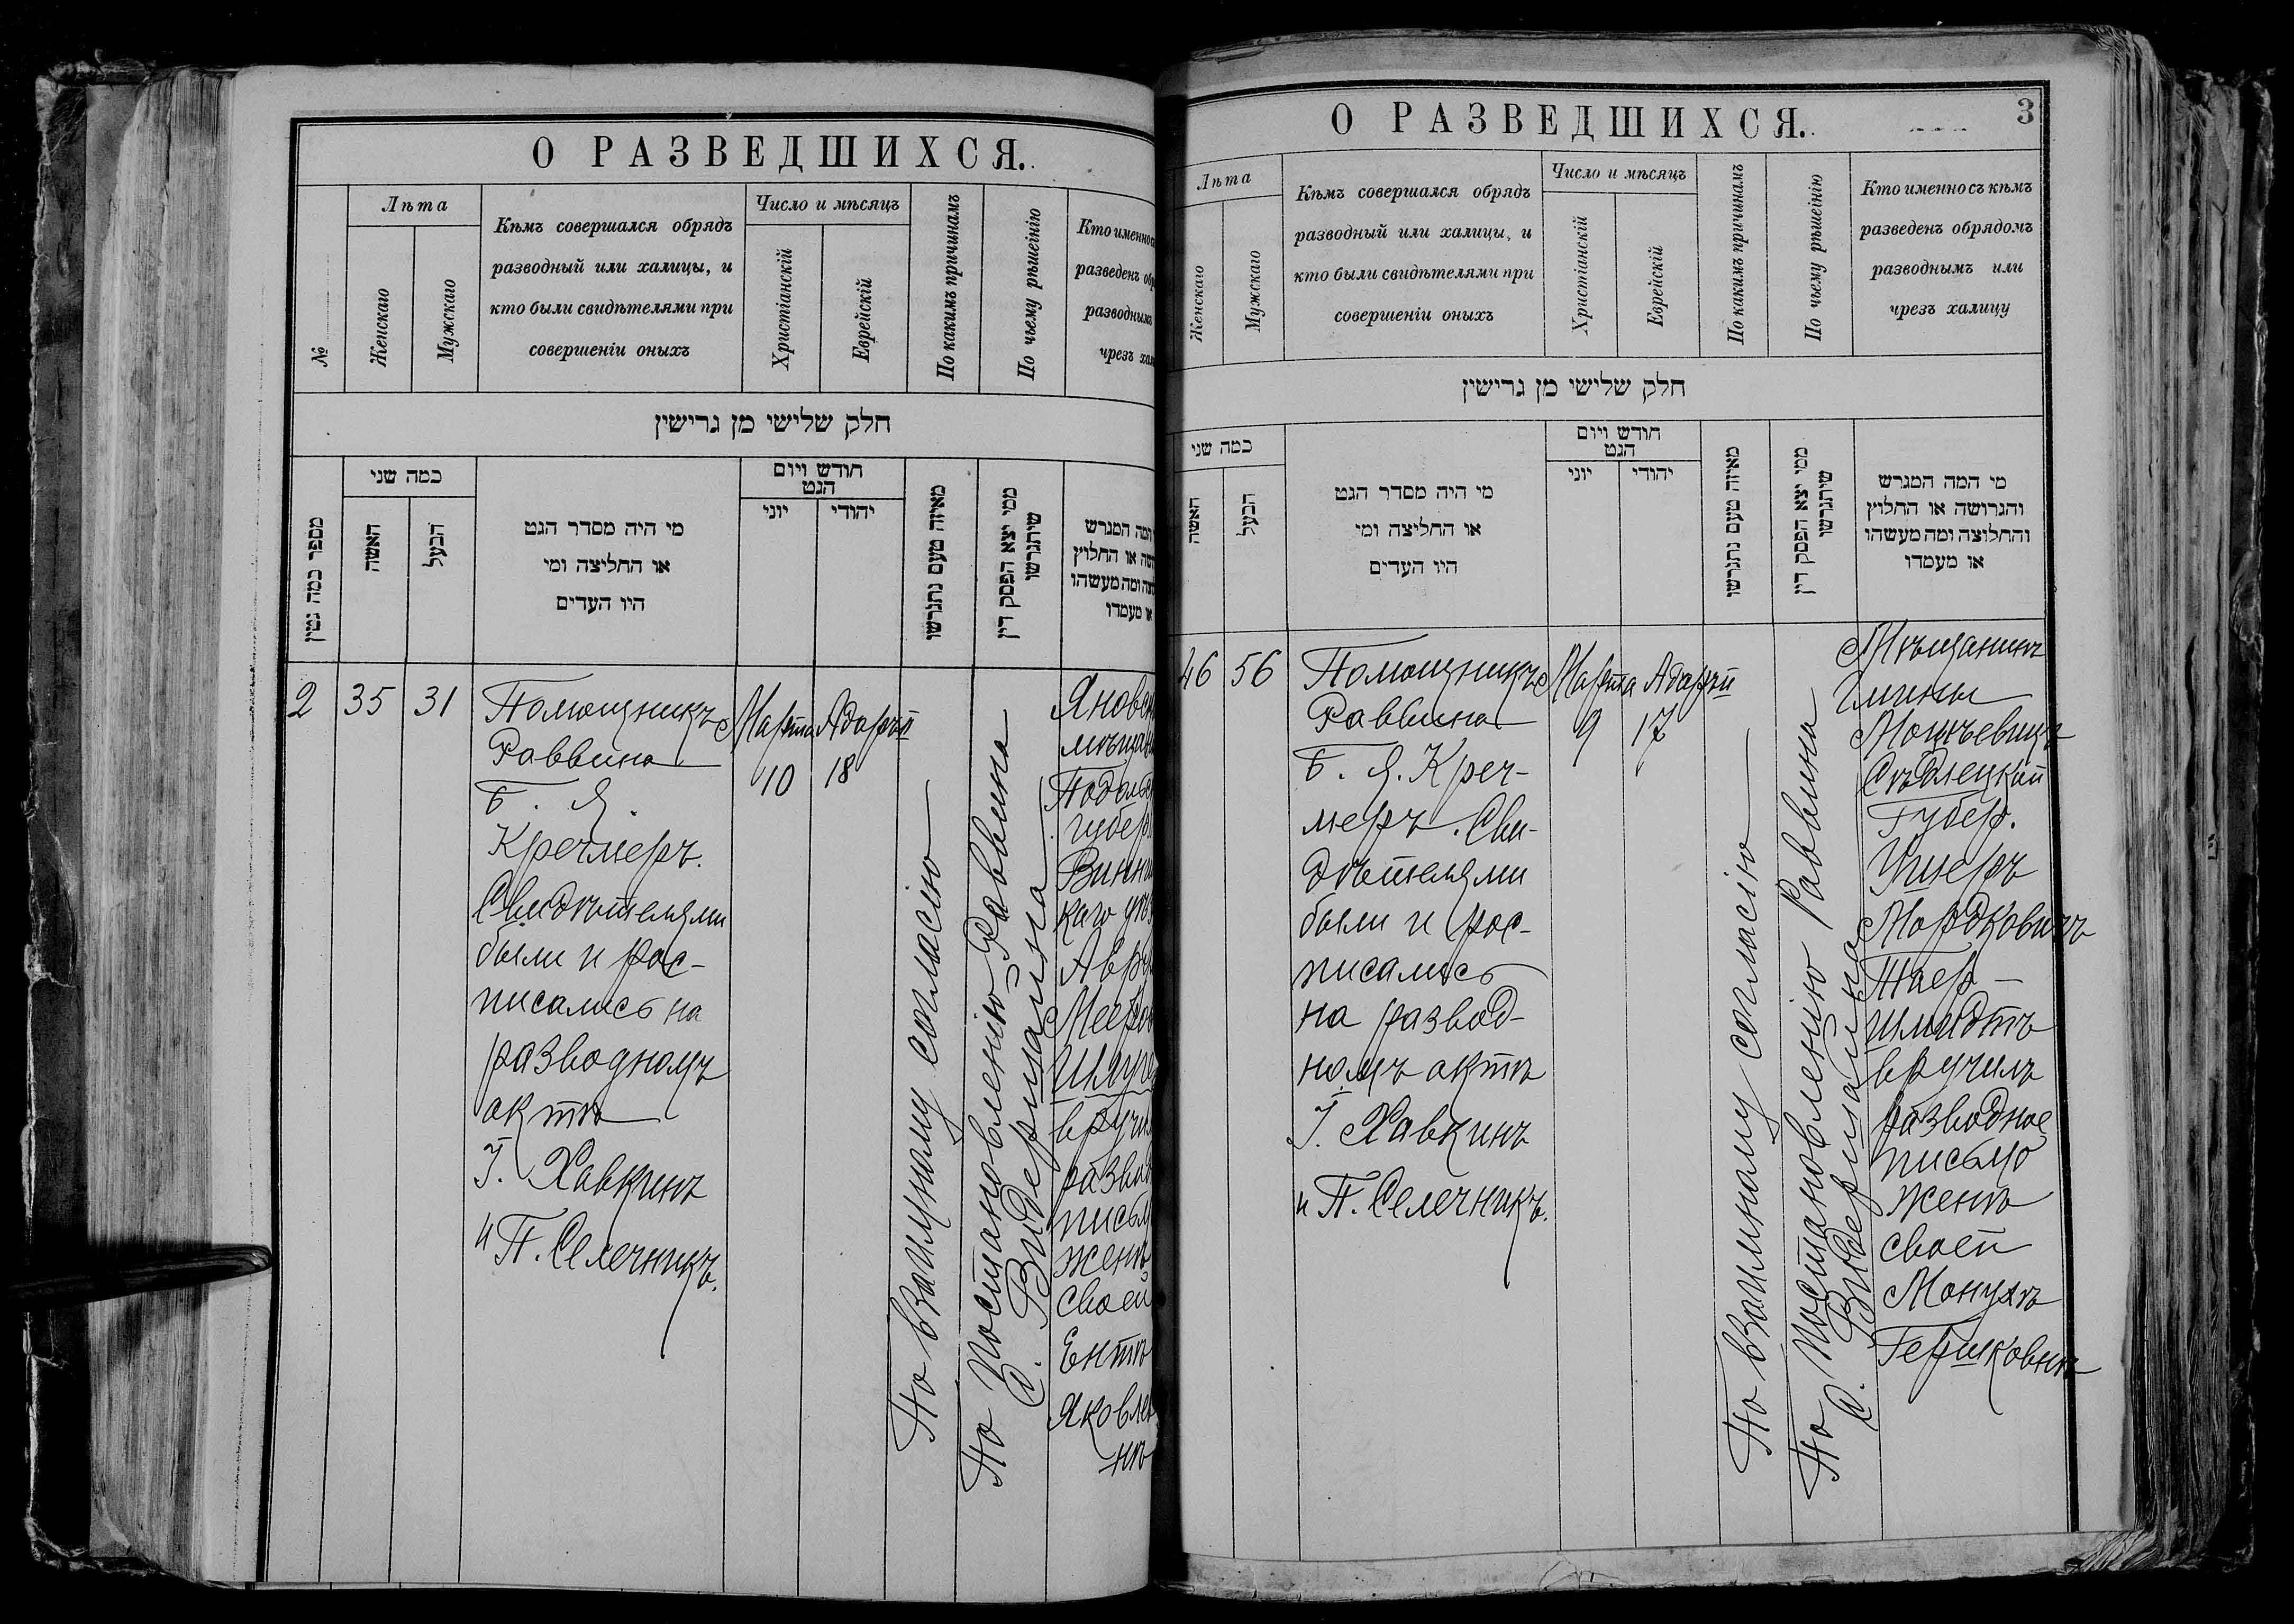 О РАЗВЕДШИХСЯ.
№
Лѣта
Женскаго
Мужскаго
Кѣмъ совершался обрядъ
разводный или халицы, и
кто были свидѣтелями при
совершеніи оныхъ
Число и мѣсяцъ
Христіанскій
Еврейскій
По какимъ причинамъ
По чьему рѣшеінію
Кто именно
разведенъ
разводнымъ
чрезъ
חלק שלישי מן גרישין
מספר כמה גטין
כמה שני
האשה
הבעל
מי היה מסדר הגט
או החליצה ומי
היו העדים
חודש ויום
הגט
יוני
יהודי
מאיזה טעם נתגרשו
ממי יצא הפסק דין
שיתגרשו
המה המגרש
או החלוץ
ומה מעשהו
או מעמדו
2
35
31
Помощникъ
Раввина
Б. Я.
Кречмеръ.
Свидѣтелями
были и рос-
писались на
разводномъ
актѣ
Г. Хавкинъ
и П. Селечникъ.
Марта
10
Адаръ II
18
По взаимному согласію
По постановленію Раввина
С. Видермана
Яновс
мѣщан
Подоль
губер
Винни
каго уѣ
Авру
Меер
вручи
развод
письм
женѣ
своей
Ентѣ
Яковлев
нѣ
О РАЗВЕДШИХСЯ.
3
Лѣта
Женскаго
Мужскаго
Кѣмъ совершался обрядъ
разводный или халицы, и
кто были свидѣтелями при
совершеніи оныхъ
Число и мѣсяцъ
Христіанскій
Еврейскій
По какимъ причинамъ
По чьему рѣшеінію
Кто именно съ кѣмъ
разведенъ обрядомъ
разводнымъ или
чрезъ халицу
חלק שלישי מן גרישין
כמה שני
האשה
הבעל
מי היה מסדר הגט
או החליצה ומי
היו העדים
חודש ויום
הגט
יוני
יהודי
מאיזה טעם נתגרשו
ממי יצא הפסק דין
שיתגרשו
מי המה המגרש
והגרושה או החלוץ
והחלוצה ומה מעשהו
או מעמדו
46
56
Помощникъ
Раввина
Б. Я. Креч-
меръ. Сви-
дѣтелями
были и рос-
писались
на развод-
номъ актѣ
Г. Хавкинъ
и П. Селечникъ.
Марта
9
Адаръ II
17
По взаимному согласію
По постановленію Раввина
С. Видермана
Мѣщанинъ
Гмины
Сѣдлецкой
Губер.
Ушеръ
Мордковичъ
шмидтъ
вручилъ
разводное
письмо
женѣ
своей
Манухѣ
Гершковнѣ